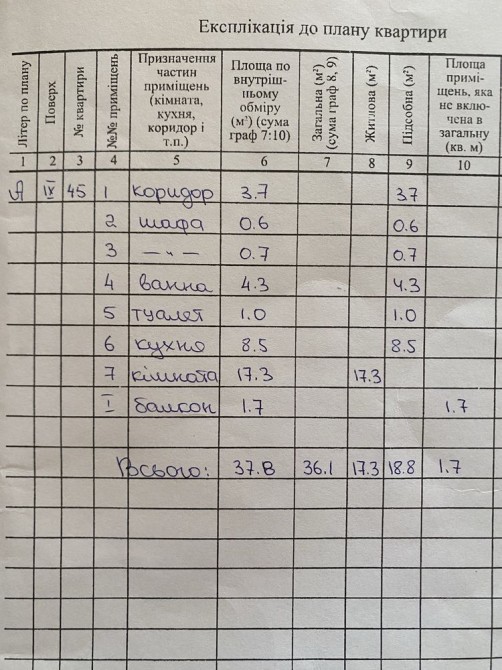 Експлікація до плану квартири
Літер по плану | Поверх | № квартири | №№ приміщень | Призначення частин приміщень (кімната, кухня, коридор і т.п.) | Площа по внутріш-ньому обміру (м²) (сума граф 7:10) | Загальна (м²) (сума граф 8, 9) | Житлова (м²) | Підсобна (м²) | Площа примі-щень, яка не вклю-чена в загальну (кв. м)
1 | 2 | 3 | 4 | 5 | 6 | 7 | 8 | 9 | 10
А | IX | 45 | 1 | коридор | 3.7 | | | 3.7 |
2 | шафа | 0.6 | | | 0.6 |
3 | — „ — | 0.7 | | | 0.7 |
4 | ванна | 4.3 | | | 4.3 |
5 | туалет | 1.0 | | | 1.0 |
6 | кухню | 8.5 | | | 8.5 |
7 | кімната | 17.3 | | 17.3 | |
I | балкон | 1.7 | | | | 1.7
Всього: | 37.8 | 36.1 | 17.3 | 18.8 | 1.7